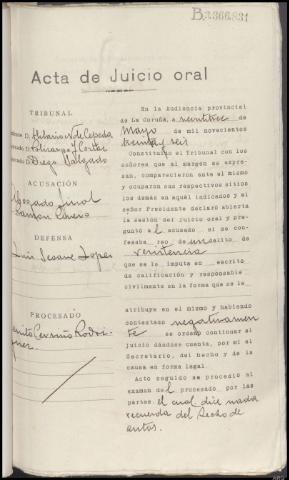 B.3.366.831
Acta de Juicio oral
TRIBUNAL
D. Hilario N. de Cepeda
D.
D. Diego Delgado
ACUSACIÓN
Abogado fiscal
DEFENSA
Luis Seoane Lopez
PROCESADO
En la Audiencia provincial
de La Coruña, a veintitres de
Mayo de mil novecientos
treinta y seis
Constituído el Tribunal con los
señores que al margen se expre-
san, comparecieron ante el mismo
y ocuparon sus respectivos sitios
los demás en aquél indicados y el
señor Presidente declaró abierta
la sesión del juicio oral y pre-
guntó al acusado si se con-
fesaba reo de un delito de
resistencia
que se le imputa en escrito
de calificación y responsable
civilmente en la forma que se le
atribuye en el mismo y habiendo
contestado negativamen
te se ordenó continuar el
juicio dándose cuenta, por mi el
Secretario, del hecho y de la
causa en forma legal.
Acto seguido se procedió al
examen del procesado, por las
partes. el cual dice nada
recuerda del hecho de
autos.